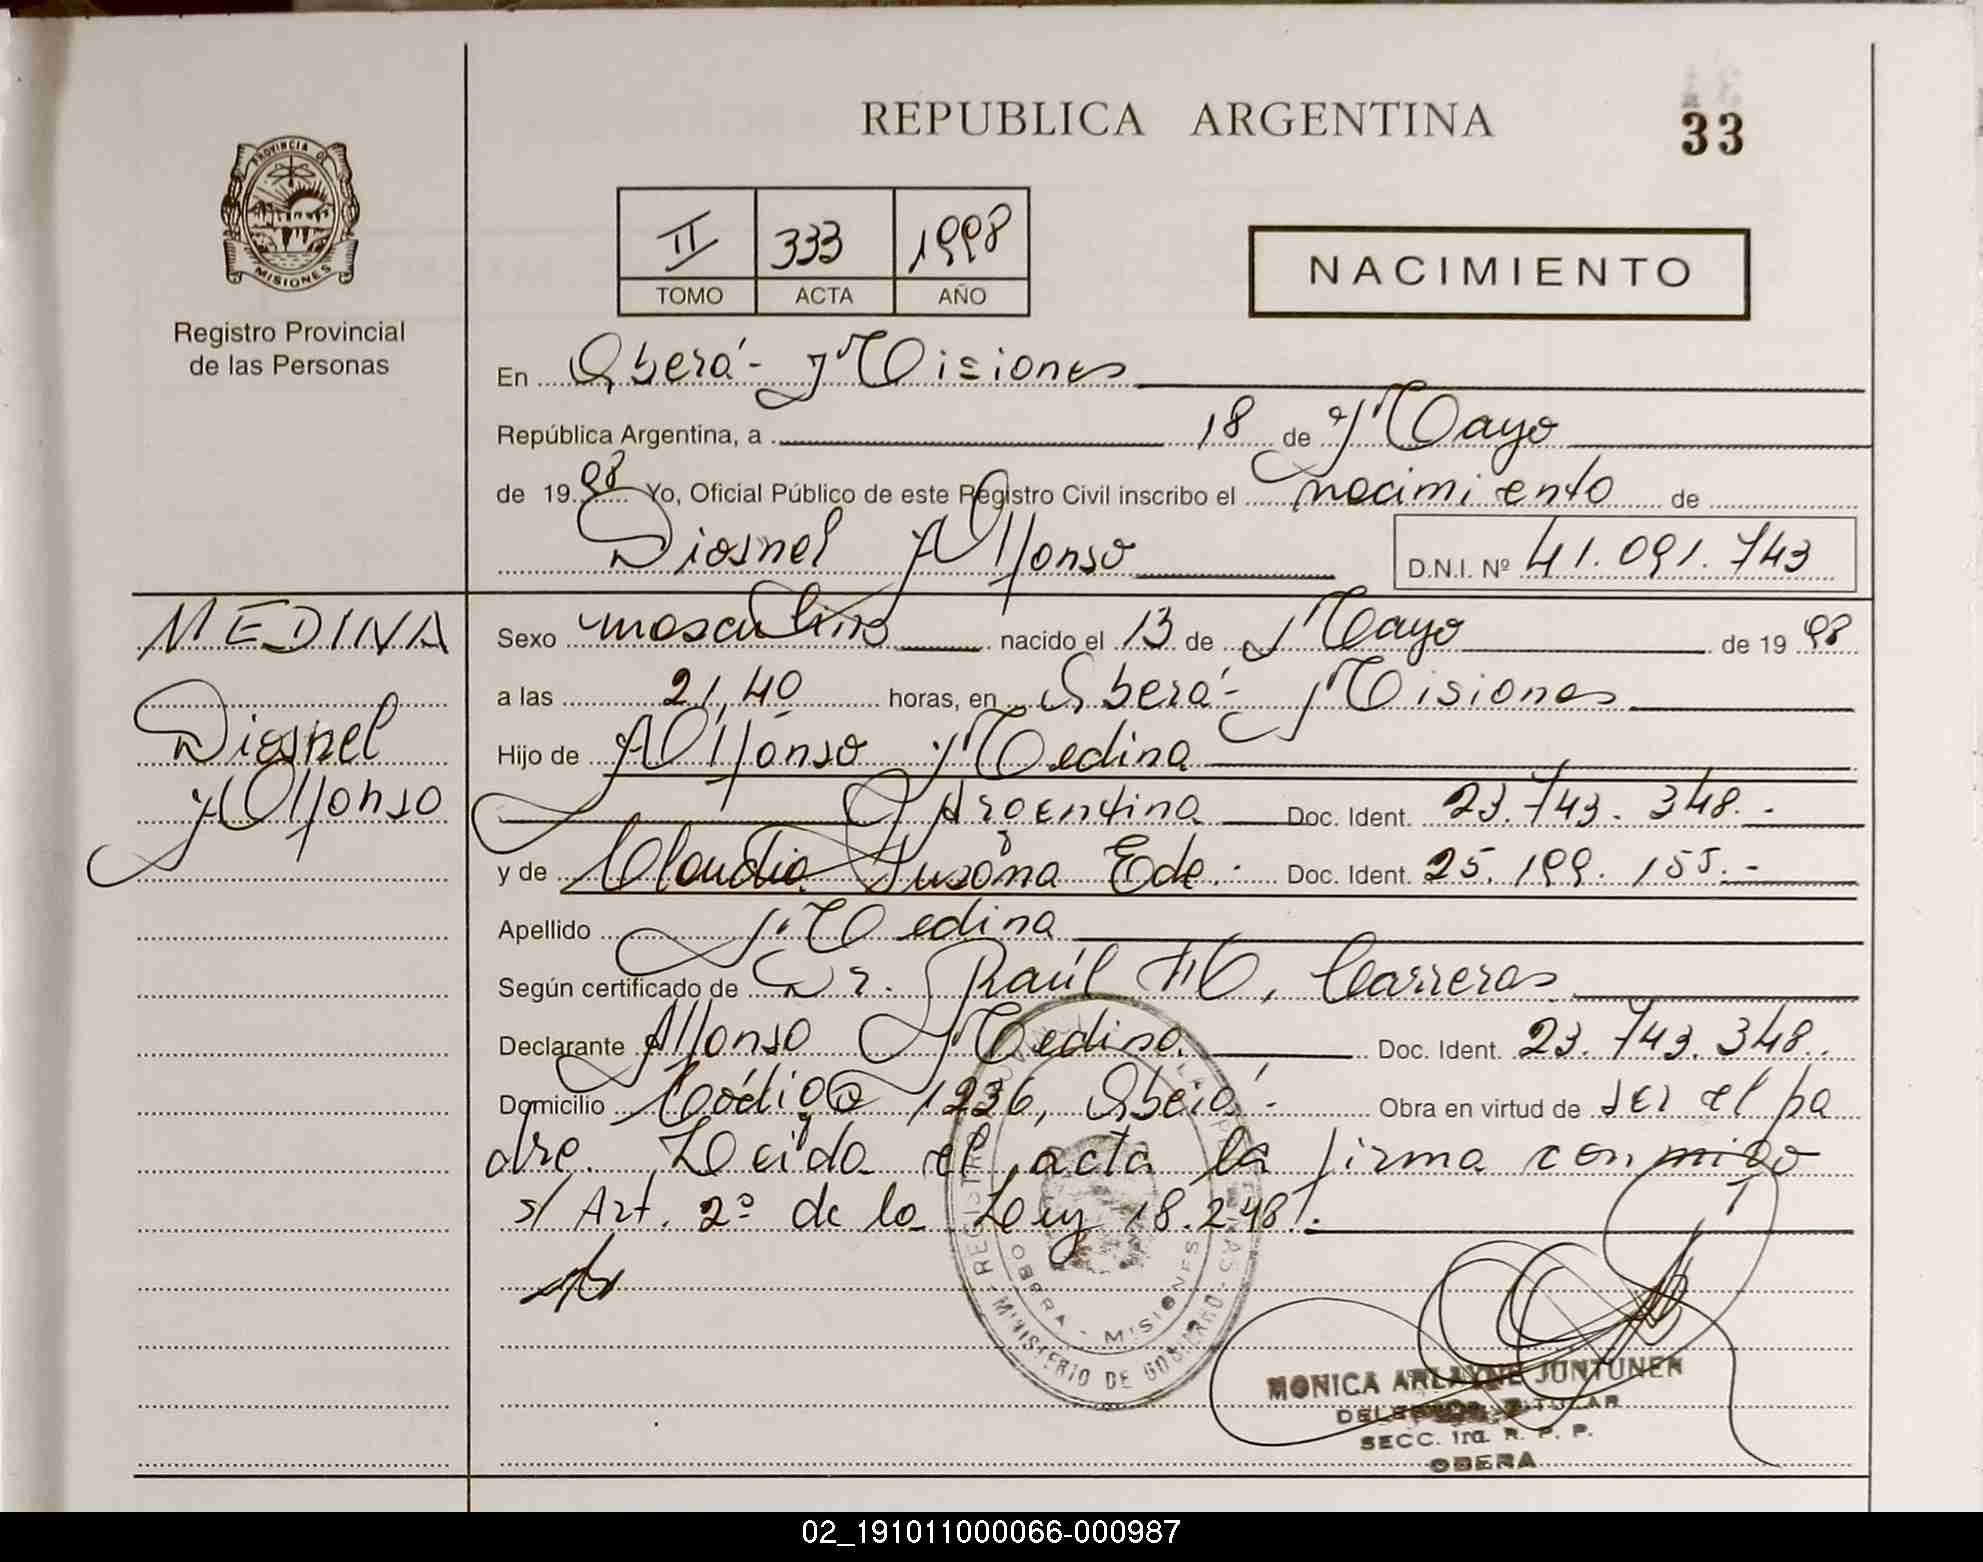 REPUBLICA ARGENTINA
33
PROVINCIA DE
MISIONES
Registro Provincial
de las Personas
II 333 1998
TOMO ACTA AÑO
NACIMIENTO
En Oberá - Misiones
República Argentina, a 18 de Mayo
de 1998 Yo, Oficial Público de este Registro Civil inscribo el nacimiento de
Diosnel Alfonso D.N.I. Nº 41.091.743
MEDINA
Diosnel
Alfonso
Sexo masculino nacido el 13 de Mayo de 1998
a las 21,40 horas, en Oberá - Misiones
Hijo de Alfonso Medina
Argentina Doc. Ident. 23.743.348.-
y de Claudia Susana Ede.- Doc. Ident. 25.199.155.-
Apellido Medina
Según certificado de Dr. Raúl H. Carreras
Declarante Alfonso Medina Doc. Ident. 23.743.348.
Domicilio Código 1236, Oberá.- Obra en virtud de ser el pa
dre. Leida el acta la firma conmigo
s/ Art. 2º de la Ley 18.248.
MINISTERIO DE GOBIERNO
OBERA - MISIONES
MONICA ARLAYNE JUNTUNEN
TITULAR
SECC. 1ra. R. P. P.
OBERA
02_191011000066-000987